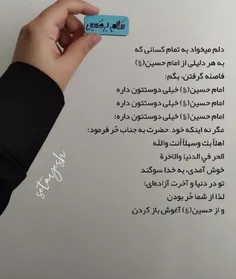 سلام بر حسین
دلم میخواد به تمام کسانی که
به هر دلیلی از امام حسین(ع)
فاصله گرفتن، بگم:
امام حسین(ع) خیلی دوستتون داره
امام حسین(ع) خیلی دوستتون داره
امام حسین(ع) خیلی دوستتون داره؛
مگر نه اینکه خود حضرت به جناب حُر فرمود:
اهلاً بك وسهلاً أنت والله
الحر في الدنيا والاخرة
خوش آمدی، به خدا سوگند
تو در دنیا و آخرت آزاده‌ای؛
لذا از شما حُر بودن
و از حسین(ع) آغوش باز کردن
setayesh